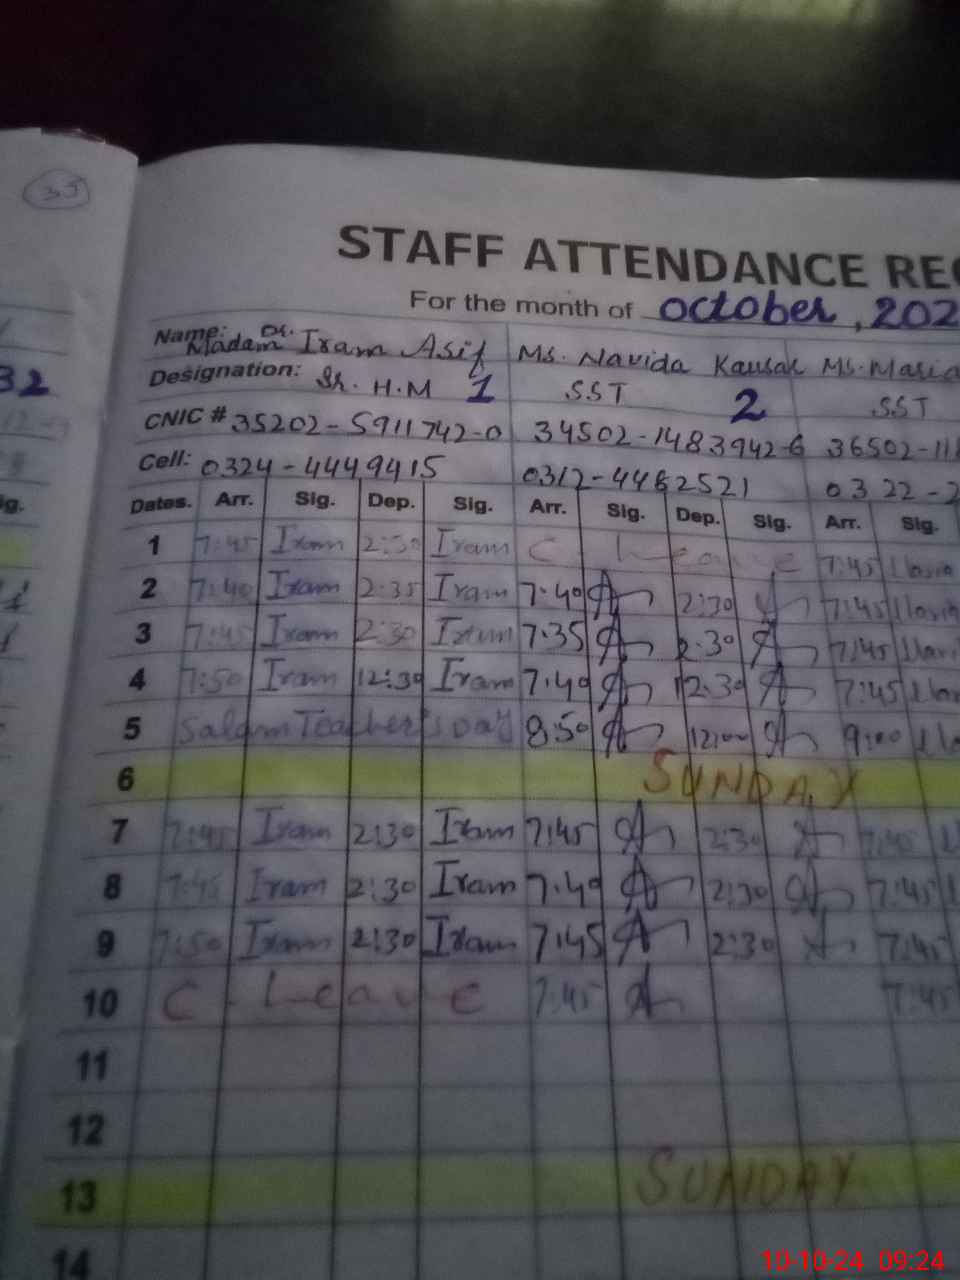 35
STAFF ATTENDANCE REG
For the month of October, 202
Name: Madam Dr. Iram Asif Ms. Navida Kausar Ms. Maria
Designation: Sr. H.M 1 S.S.T 2 S.S.T
CNIC # 35202-5911742-0 34502-1483942-6 36502-11
Cell: 0324-4449415 0312-4462521 0322-2
Dates. Arr. Sig. Dep. Sig. Arr. Sig. Dep. Sig. Arr. Sig.
1 7:45 Iram 2:30 Iram C Leave 7:45 Maria
2 7:40 Iram 2:35 Iram 7:40 2:30 7:45 Maria
3 7:45 Iram 2:30 Iram 7:35 2:30 7:45 Mari
4 7:50 Iram 12:30 Iram 7:40 12:30 7:45 Mar
5 Salam Teacher's Day 8:50 12:00 9:00 Ma
6 SUNDAY
7 7:45 Iram 2:30 Iram 7:45 2:30 7:45
8 7:45 Iram 2:30 Iram 7:40 2:30 7:45
9 7:50 Iram 2:30 Iram 7:45 2:30 7:45
10 C Leave 7:45 7:45
11
12
13 SUNDAY
14
32
ig.
10-10-24 09:24